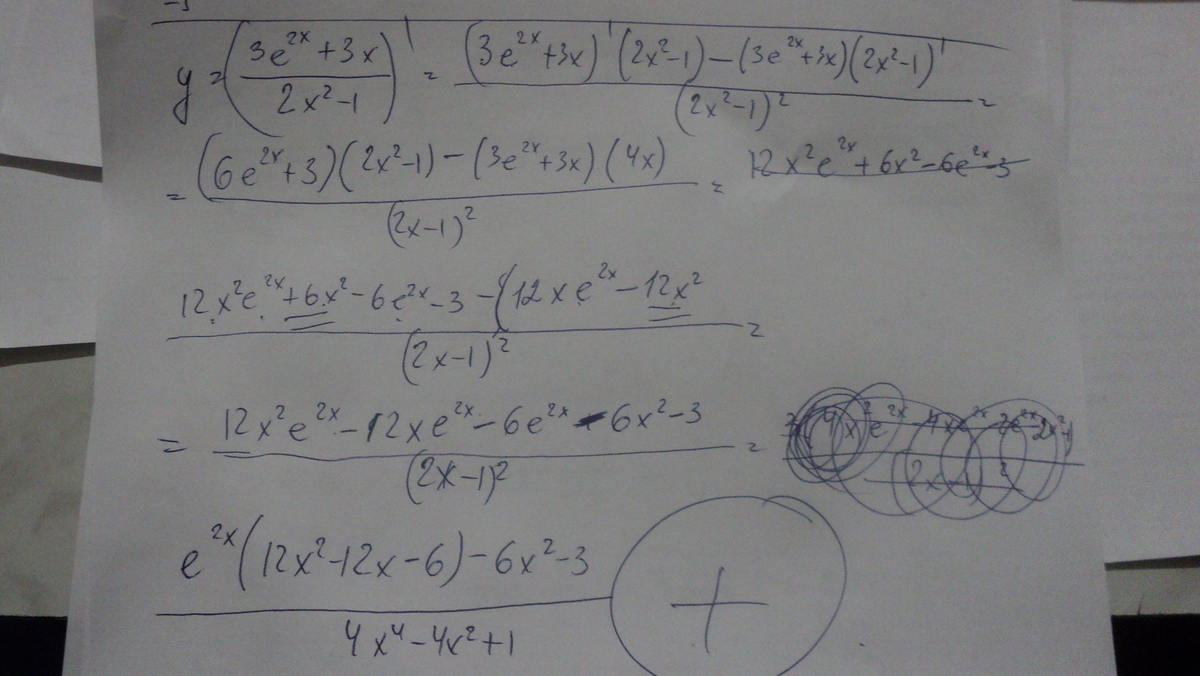 -3
y = ((3e^{2x} + 3x)/(2x² - 1))' = ((3e^{2x} + 3x)' (2x² - 1) - (3e^{2x} + 3x)(2x² - 1)')/((2x² - 1)²) =
= ((6e^{2x} + 3)(2x² - 1) - (3e^{2x} + 3x)(4x))/((2x - 1)²) = 12x²e^{2x} + 6x² - 6e^{2x} - 3
(12x²e^{2x} + 6x² - 6e^{2x} - 3 - (12xe^{2x} - 12x²)/((2x - 1)²) =
= (12x²e^{2x} - 12xe^{2x} - 6e^{2x} - 6x² - 3)/((2x - 1)²) =
(e^{2x}(12x² - 12x - 6) - 6x² - 3)/(4x⁴ - 4x² + 1) +